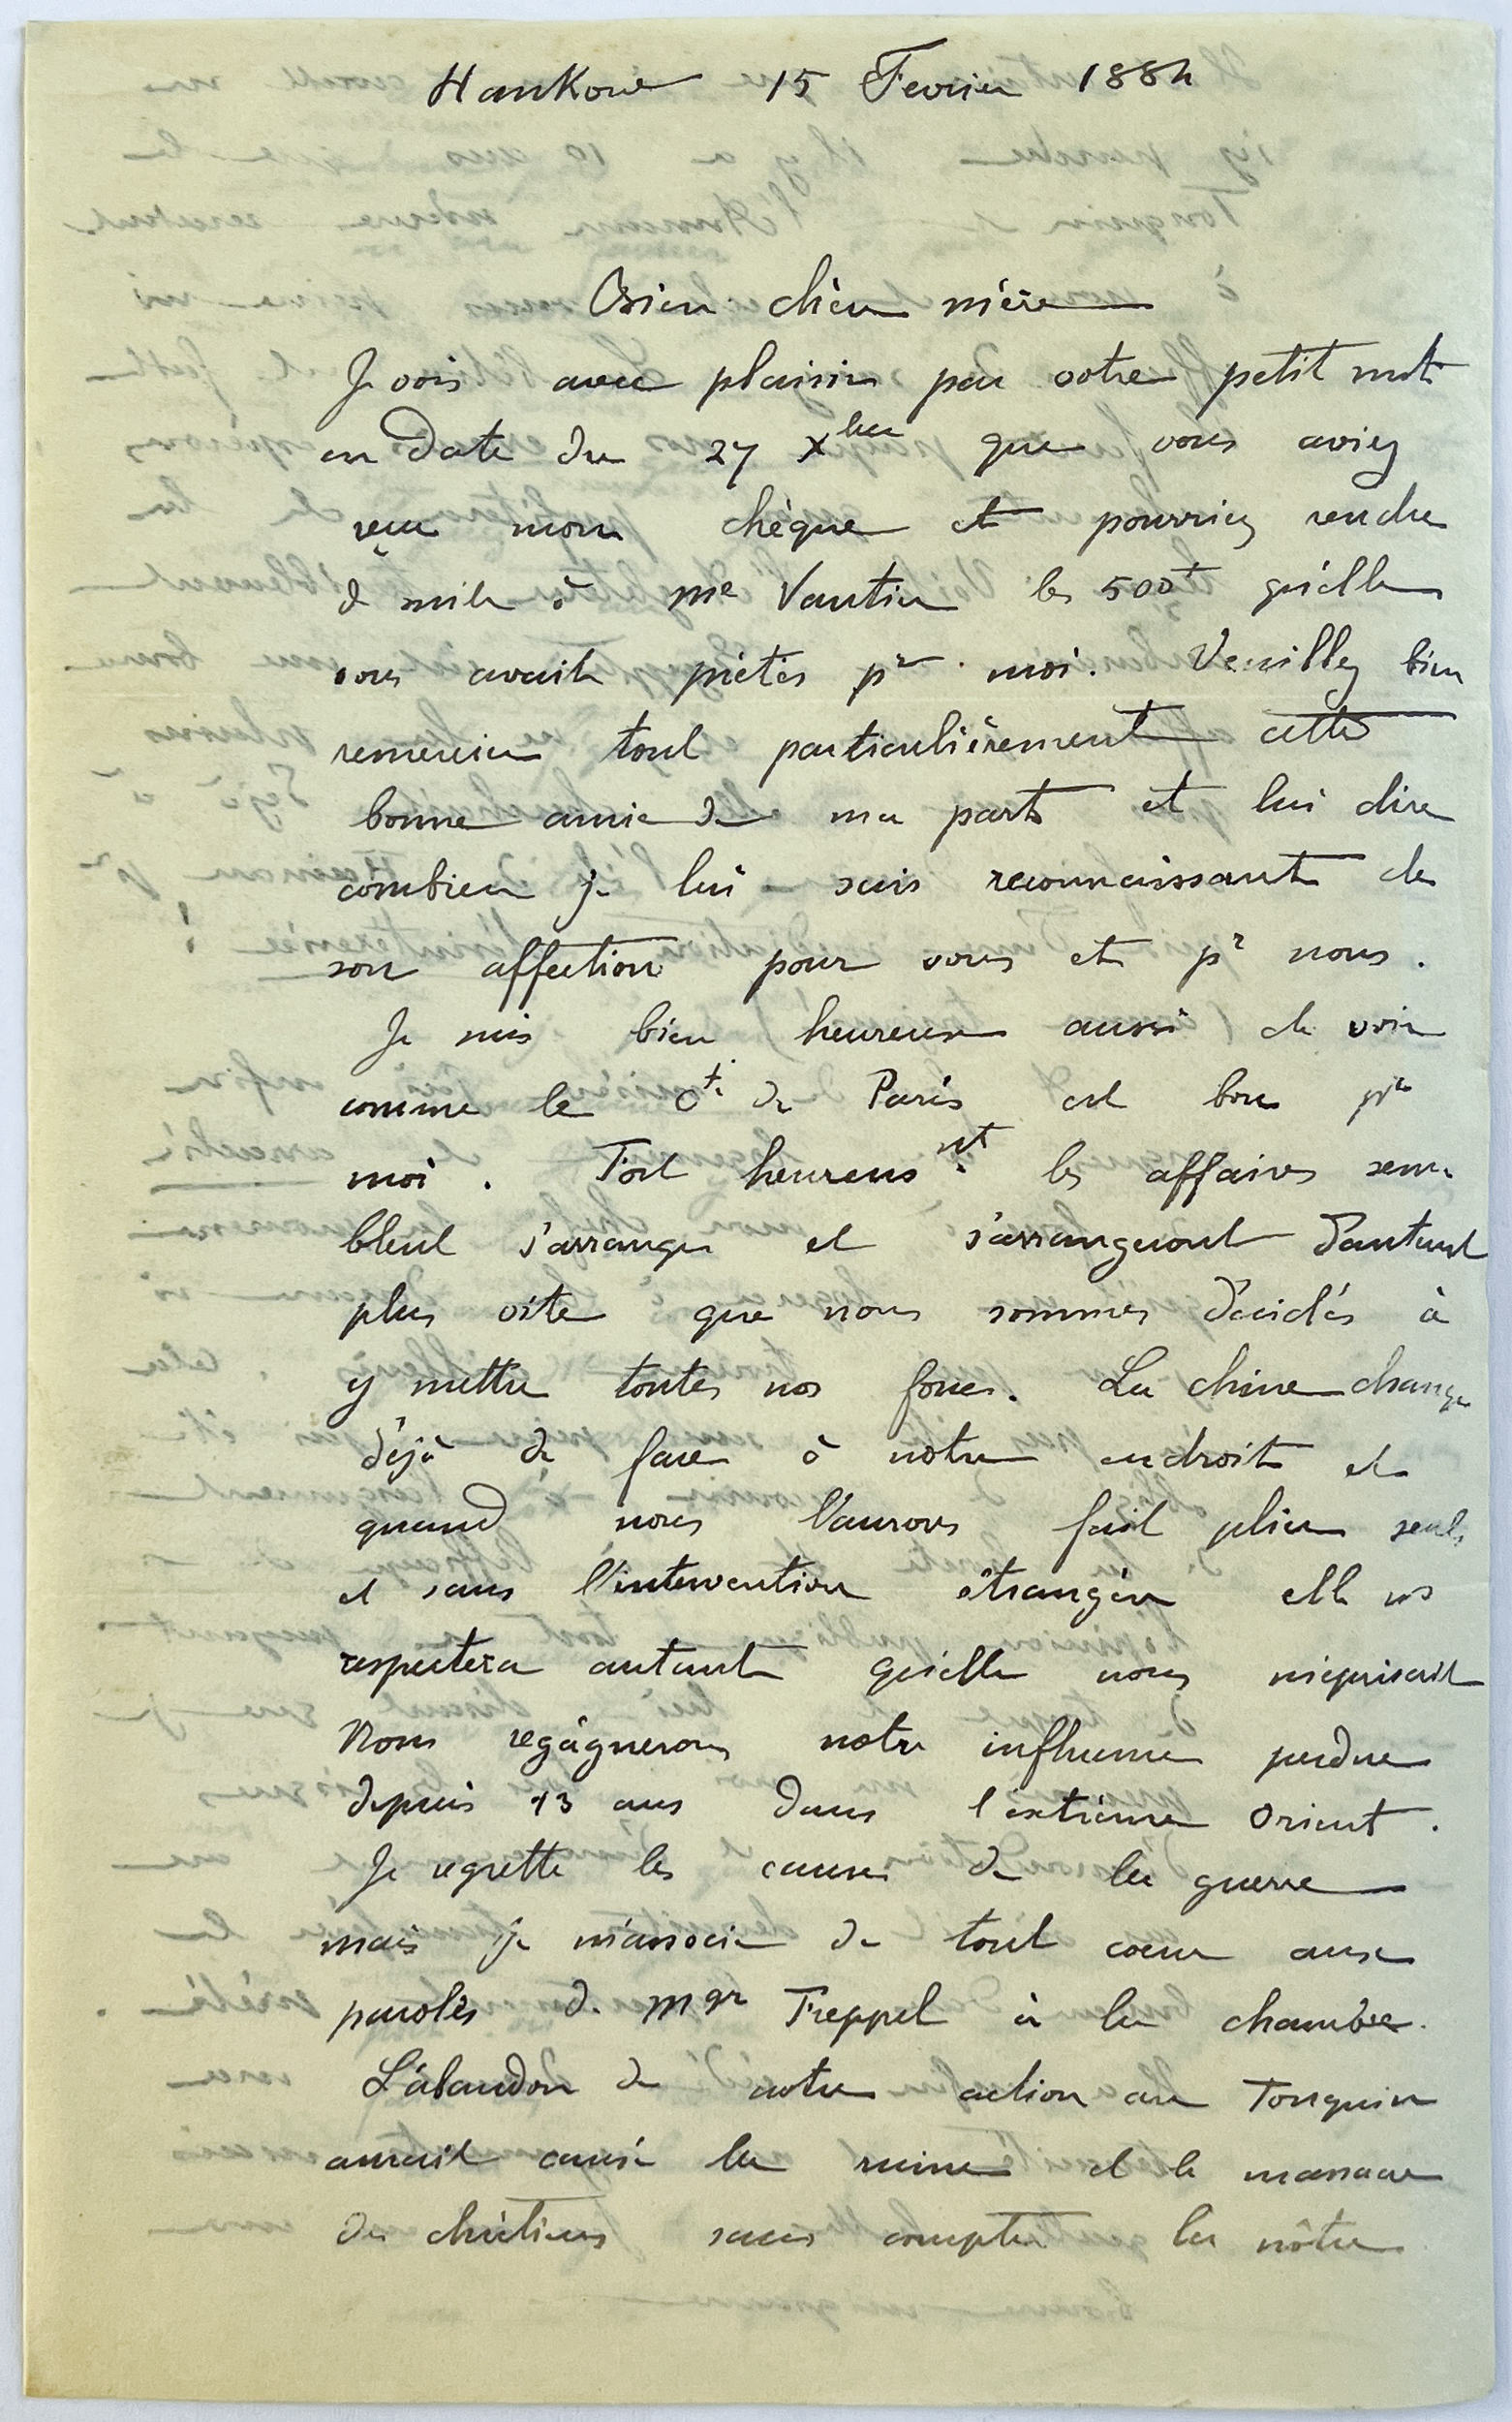 Hankow 15 Fevrier 1884
Bien chère mère
Je vois avec plaisir par votre petit mot
en date du 27 Xbre que vous aviez
reçu mon chèque et pourriez rendre
de suite à Me Vautier les 500f qu'elle
vous avait prêtés pr moi. Veuillez bien
remercier tout particulièrement cette
bonne amie de ma part et lui dire
combien je lui suis reconnaissant de
son affection pour vous et pr nous.
Je suis bien heureux aussi de voir
comme le Cte de Paris est bon pr
moi. Fort heureusnt les affaires sem-
blent s'arranger et s'arrangeront d'autant
plus vite que nous sommes décidés à
y mettre toutes nos forces. La chine change
déjà de face à notre endroit et
quand nous l'aurons fait plier seuls
et sans l'intervention étrangère elle ns
respectera autant qu'elle nous méprisait
Nous regagnerons notre influence perdue
depuis 13 ans dans l'extrème Orient.
Je regrette les causes de la guerre
mais je m'associe de tout coeur aux
paroles de Mgr Freppel à la chambre.
L'abandon de notre action au Tonquin
aurait causé la ruine et le massacre
des chrétiens sans compter la nôtre